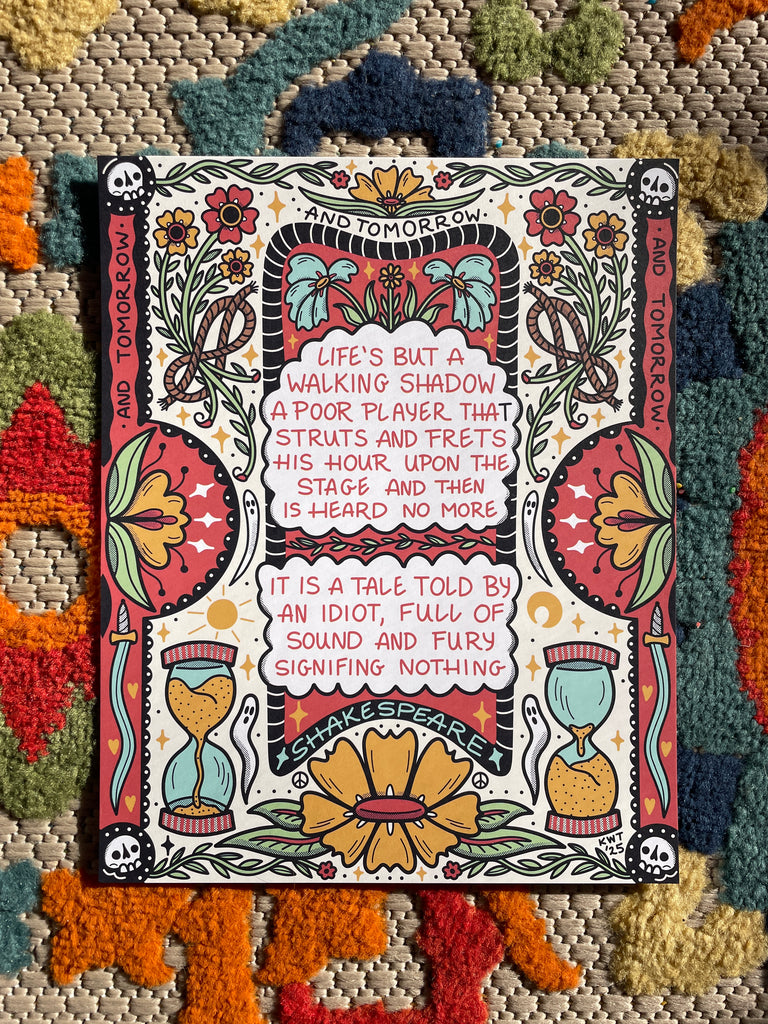 AND TOMORROW
·AND TOMORROW·
·AND TOMORROW·
LIFE'S BUT A
WALKING SHADOW
A POOR PLAYER THAT
STRUTS AND FRETS
HIS HOUR UPON THE
STAGE AND THEN
IS HEARD NO MORE
IT IS A TALE TOLD BY
AN IDIOT, FULL OF
SOUND AND FURY
SIGNIFING NOTHING
SHAKESPEARE
KWT
'25